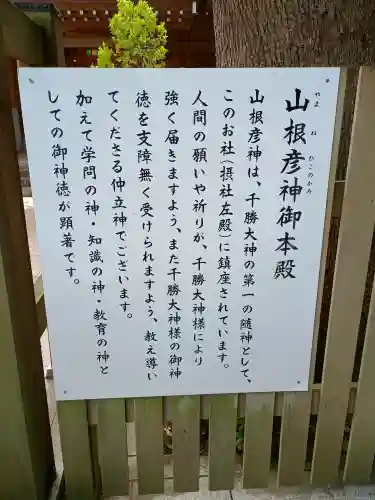 山根彦神御本殿
やまねひこのかみ
山根彦神は、千勝大神の第一の随神として、
このお社(摂社左殿)に鎮座されています。
人間の願いや祈りが、千勝大神様により
強く届きますよう、また千勝大神様の御神
徳を支障無く受けられますよう、教え導い
てくださる仲立神でございます。
加えて学問の神・知識の神・教育の神と
しての御神徳が顕著です。